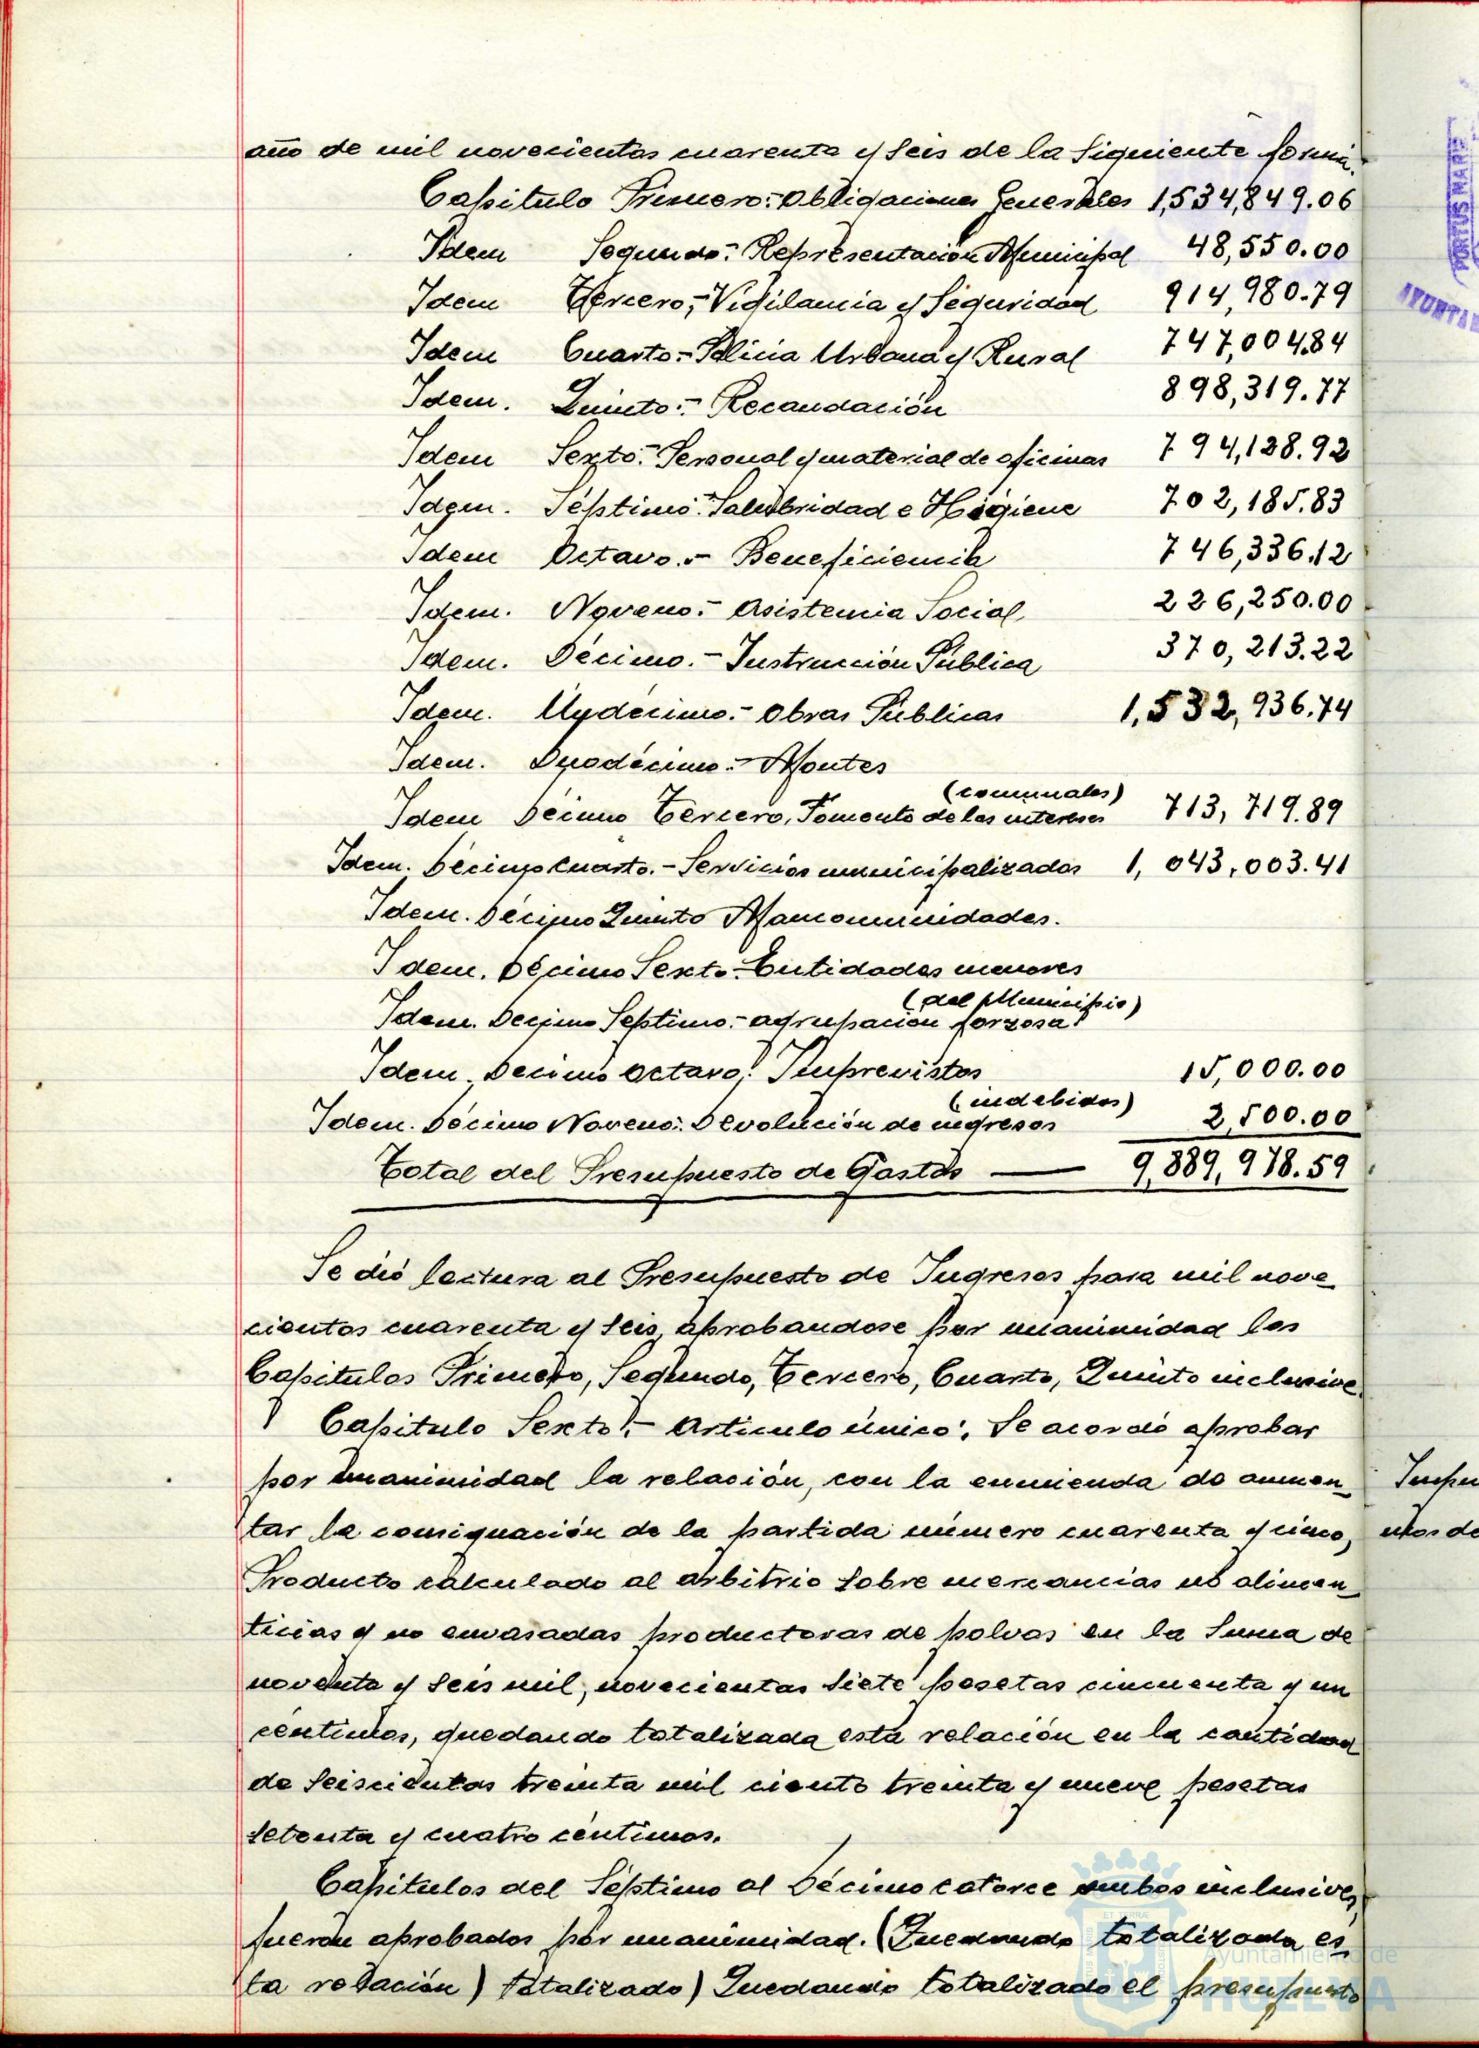 año de mil novecientos cuarenta y seis de la siguiente forma.
Capitulo Primero:- Obligaciones Generales 1,534,849.06
Idem Segundo:- Representación Municipal 48,550.00
Idem Tercero,- Vigilancia y Seguridad 914,980.79
Idem Cuarto:- Policia Urbana y Rural 747,004.84
Idem. Quinto:- Recaudación 898,319.77
Idem Sexto:- Personal y material de oficinas 794,128.92
Idem. Séptimo:- Salubridad e Higiene 702,185.83
Idem Octavo.- Beneficiencia 746,336.12
Idem. Noveno.- Asistencia Social 226,250.00
Idem. Décimo.- Instrucción Pública 370,213.22
Idem. Undécimo.- Obras Públicas 1,532,936.74
Idem. Duodécimo.- Montes
(comunales)
Idem Décimo Tercero, Fomento de los intereses 713,719.89
Idem. Décimo cuarto.- Servicios municipalizados 1,043,003.41
Idem. Décimo Quinto Mancomunidades.
Idem. Décimo Sexto:- Entidades menores
(del Municipio)
Idem. Decimo Septimo:- agrupación forzosa
Idem. Decimo octavo: Imprevistos 15,000.00
(indebidos)
Idem. Décimo Noveno:. Devolución de ingresos 2,500.00
Total del Presupuesto de Gastos — 9,889,978.59
Se dió lectura al Presupuesto de Ingresos para mil nove-
cientos cuarenta y seis, aprobandose por unanimidad los
Capitulos Primero, Segundo, Tercero, Cuarto, Quinto inclusive.
Capitulo Sexto:- Articulo único: Se acordó aprobar
por unanimidad la relación, con la enmienda de aumen-
tar la consignación de la partida número cuarenta y cinco,
Producto calculado al arbitrio sobre mercancias no alimen-
ticias y no envasadas productoras de polvos en la suma de
noventa y seis mil, novecientas siete pesetas cincuenta y un
céntimos, quedando totalizada esta relación en la cantidad
de seiscientas treinta mil ciento treinta y nueve pesetas
setenta y cuatro céntimos.
Capitulos del Séptimo al Décimo catorce ambos inclusives,
fueron aprobados por unanimidad. (Quedando totalizada es-
ta relación) totalizado) Quedando totalizado el presupuesto
PORTUS MARIS
AYUNTAM
Impu
utos de
Ayuntamiento de
HUELVA